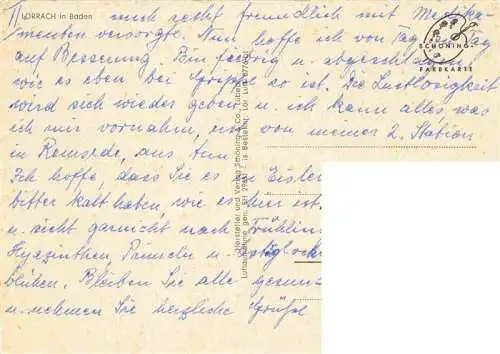 II LÖRRACH in Baden
mich recht freundlich mit Medika-
menten versorgte. Nun hoffe ich von Tag zu Tag
auf Besserung. Bin fiebrig und abgeschlagen
wie es eben bei Grippe so ist. Die Lustlosigkeit
wird sich wieder geben u. ich kann alles, was
ich mir vornahm, von meiner 2. Station
in Remsede, aus tun
Ich hoffe, dass Sie es in
bitter kalt haben, wie es hier ist.
u. sieht garnicht nach Frühlin
Hyazinthen, Primeln u.
blühen. Bleiben Sie alle gesun
u. nehmen Sie herzliche Grüße
SCHÖNING
FARBKARTE
Hersteller und Verlag Schöning & Co., Lübeck
Luftaufnahme